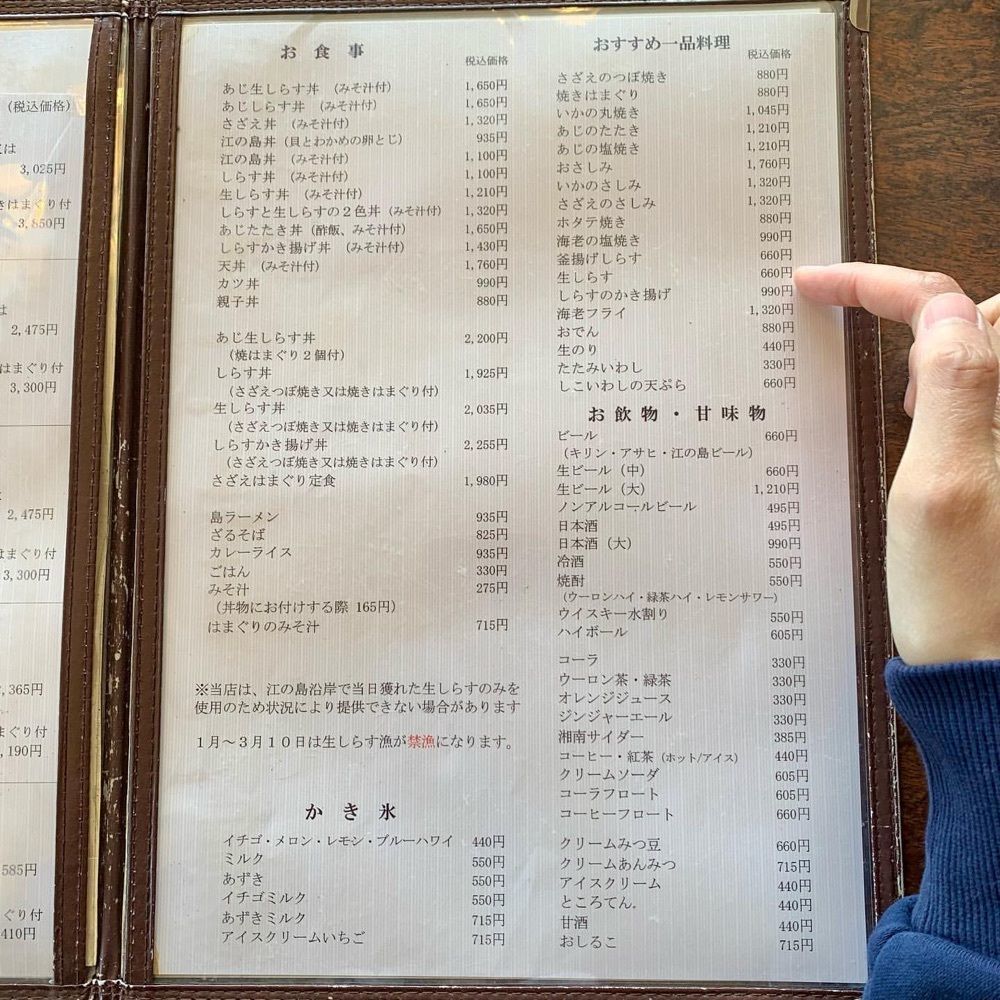 (税込価格)
は
3,025円
きはまぐり付
3,850円
は
2,475円
はまぐり付
3,300円
2,475円
はまぐり付
3,300円
,365円
まぐり付
,190円
585円
ぐり付
410円
お食事
税込価格
あじ生しらす丼 (みそ汁付) 1,650円
あじしらす丼 (みそ汁付) 1,650円
さざえ丼 (みそ汁付) 1,320円
江の島丼 (貝とわかめの卵とじ) 935円
江の島丼 (みそ汁付) 1,100円
しらす丼 (みそ汁付) 1,100円
生しらす丼 (みそ汁付) 1,210円
しらすと生しらすの2色丼 (みそ汁付) 1,320円
あじたたき丼 (酢飯、みそ汁付) 1,650円
しらすかき揚げ丼 (みそ汁付) 1,430円
天丼 (みそ汁付) 1,760円
カツ丼 990円
親子丼 880円
あじ生しらす丼 2,200円
(焼はまぐり2個付)
しらす丼 1,925円
(さざえつぼ焼き又は焼きはまぐり付)
生しらす丼 2,035円
(さざえつぼ焼き又は焼きはまぐり付)
しらすかき揚げ丼 2,255円
(さざえつぼ焼き又は焼きはまぐり付)
さざえはまぐり定食 1,980円
島ラーメン 935円
ざるそば 825円
カレーライス 935円
ごはん 330円
みそ汁 275円
(丼物にお付けする際 165円)
はまぐりのみそ汁 715円
※当店は、江の島沿岸で当日獲れた生しらすのみを
使用のため状況により提供できない場合があります
1月〜3月10日は生しらす漁が禁漁になります。
かき氷
イチゴ・メロン・レモン・ブルーハワイ 440円
ミルク 550円
あずき 550円
イチゴミルク 550円
あずきミルク 715円
アイスクリームいちご 715円
おすすめ一品料理
税込価格
さざえのつぼ焼き 880円
焼きはまぐり 880円
いかの丸焼き 1,045円
あじのたたき 1,210円
あじの塩焼き 1,210円
おさしみ 1,760円
いかのさしみ 1,320円
さざえのさしみ 1,320円
ホタテ焼き 880円
海老の塩焼き 990円
釜揚げしらす 660円
生しらす 660円
しらすのかき揚げ 990円
海老フライ 1,320円
おでん 880円
生のり 440円
たたみいわし 330円
しこいわしの天ぷら 660円
お飲物・甘味物
ビール 660円
(キリン・アサヒ・江の島ビール)
生ビール (中) 660円
生ビール (大) 1,210円
ノンアルコールビール 495円
日本酒 495円
日本酒 (大) 990円
冷酒 550円
焼酎 550円
(ウーロンハイ・緑茶ハイ・レモンサワー)
ウイスキー水割り 550円
ハイボール 605円
コーラ 330円
ウーロン茶・緑茶 330円
オレンジジュース 330円
ジンジャーエール 330円
湘南サイダー 385円
コーヒー・紅茶 (ホット/アイス) 440円
クリームソーダ 605円
コーラフロート 605円
コーヒーフロート 605円
クリームみつ豆 660円
クリームあんみつ 715円
アイスクリーム 440円
ところてん。 440円
甘酒 440円
おしるこ 715円